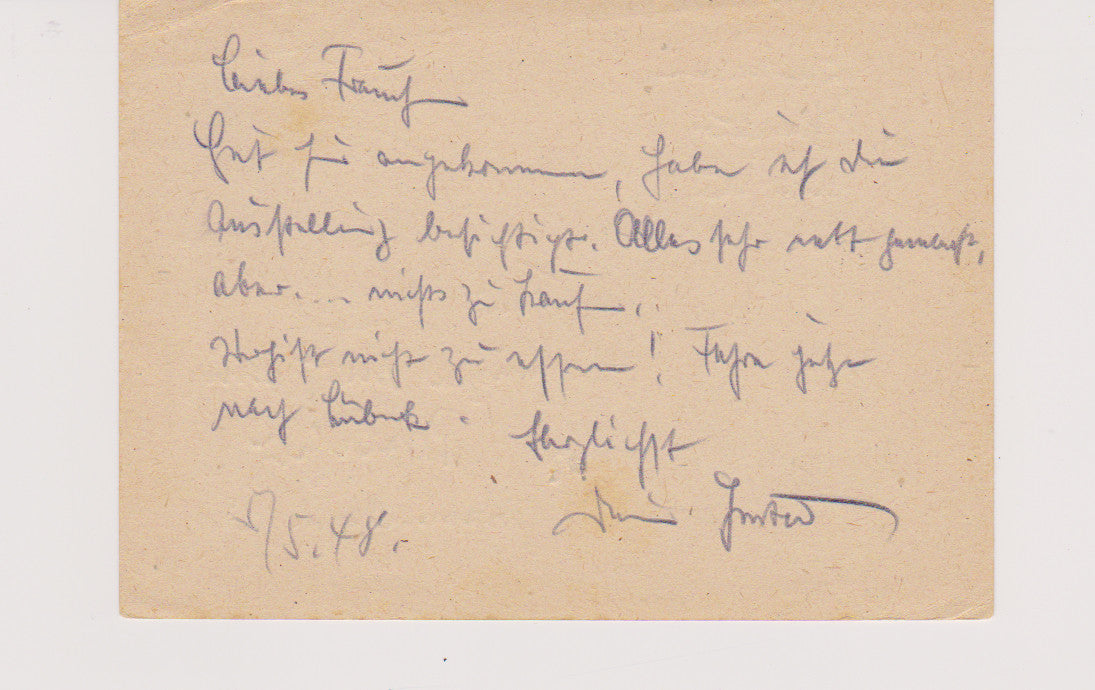 Liebes
Gut hier angekommen, habe ich die
Ausstellung besichtigt. Alles sehr nett gemacht,
aber.... nichts zu kaufen.
Vergißt nicht zu essen! Fahre jetzt
nach Lübeck. Herzlichst
Dein
5.48.